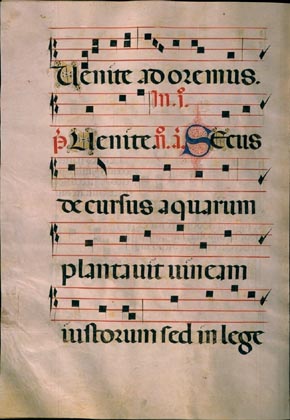 Uenite adoremus.
In. i.
p̄s Uenite. N̄. i. Secus
decursus aquarum
plantauit uineam
iustorum sed in lege